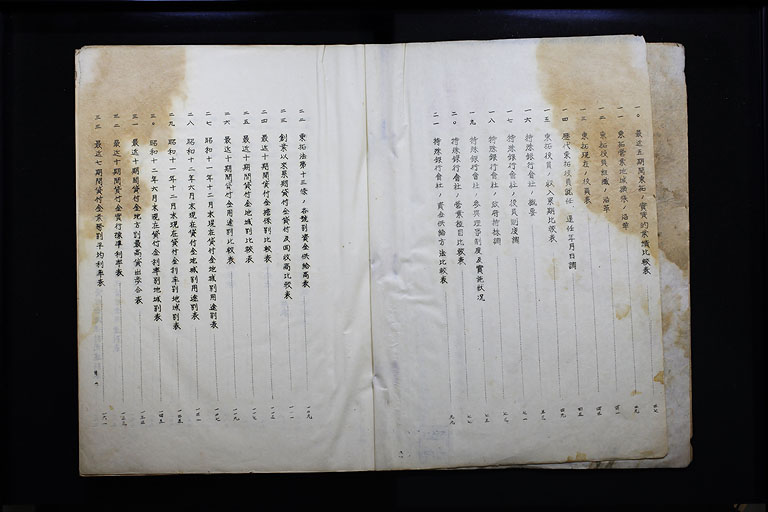 一〇 最近五期間東拓ノ實質的業績比較表
一一 東拓營業地域擴張ノ沿革
一二 東拓役員組織ノ沿革
一三 東拓現在ノ役員表
一四 歷代東拓役員就任 退任年月日調
一五 東拓役員ノ收入累期比較表
一六 特殊銀行會社ノ概要
一七 特殊銀行會社ノ役員制度調
一八 特殊銀行會社ノ政府持株調
一九 特殊銀行會社ノ參與理事制度及實施狀況
二〇 特殊銀行會社ノ營業種目比較表
二一 特殊銀行會社ノ資金供給方法比較表
二二 東拓法第十三條ノ各號別資金供給高表
二三 創業以來累期貸付金貸付及回收高比較表
二四 最近十期間貸付金擔保別比較表
二五 最近十期間貸付金地域別比較表
二六 最近十期間貸付金用途別比較表
二七 昭和十一年十二月末現在貸付金地域別用途別表
二八 昭和十二年六月末現在貸付金地域別用途別表
二九 昭和十一年十二月末現在貸付金利率別地域別表
三〇 昭和十二年六月末現在貸付金利率別地域別表
三一 最近十期間貸付金地方別最高貸出步合表
三二 最近十期間貸付金實行標準利率表
三三 最近七期間貸付金業態別平均利率表